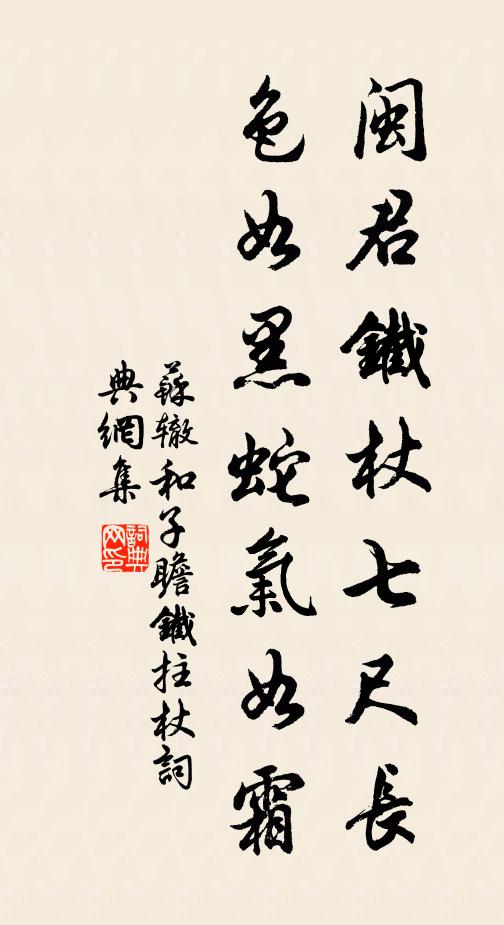 閩君鐵杖七尺長
色如黑蛇氣如霜
蘇轍和子瞻鐵拄杖詞
典網集
詞典網印